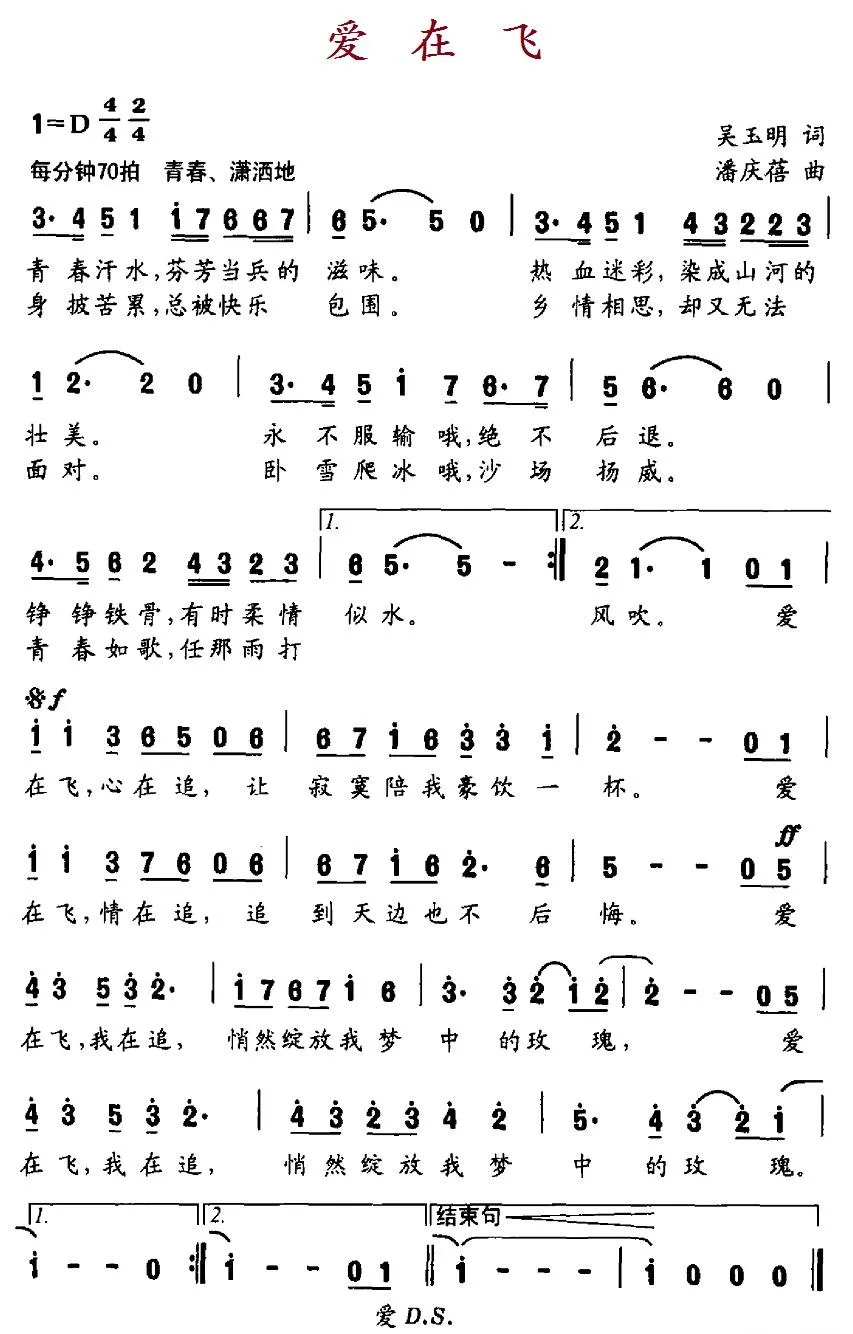 爱在飞
1=D 4/4 2/4
吴玉明 词
每分钟70拍 青春、潇洒地
潘庆蓓 曲
3· 4 5 1 i 7 6 6 7 | 6 5· 5 0 | 3· 4 5 1 4 3 2 2 3 |
青春汗水,芬芳当兵的 滋味。 热血迷彩,染成山河的
身披苦累,总被快乐 包围。 乡情相思,却又无法
1 2· 2 0 | 3· 4 5 i 7 6· 7 | 5 6· 6 0 |
壮美。 永不服输哦,绝不 后退。
面对。 卧雪爬冰哦,沙场 扬威。
1. 2.
4· 5 6 2 4 3 2 3 | 6 5· 5 - :| 2 1· 1 0 1 |
铮铮铁骨,有时柔情 似水。 风吹。 爱
青春如歌,任那雨打
𝄋 f
i i 3 6 5 0 6 | 6 7 i 6 3 3 i | 2 - - 0 1 |
在飞,心在追, 让 寂寞陪我豪饮一 杯。 爱
ff
i i 3 7 6 0 6 | 6 7 i 6 2· 6 | 5 - - 0 5 |
在飞,情在追, 追 到天边也不后 悔。 爱
4 3 5 3 2· | i 7 6 7 i 6 | 3· 3 2 i 2 | 2 - - 0 5 |
在飞,我在追, 悄然绽放我梦 中的玫瑰, 爱
4 3 5 3 2· | 4 3 2 3 4 2 | 5· 4 3 2 i |
在飞,我在追, 悄然绽放我梦 中的玫瑰。
1. 2. 结束句
i - - 0 :| i - - 0 1 || i - - - | i 0 0 0 ||
爱 D.S.